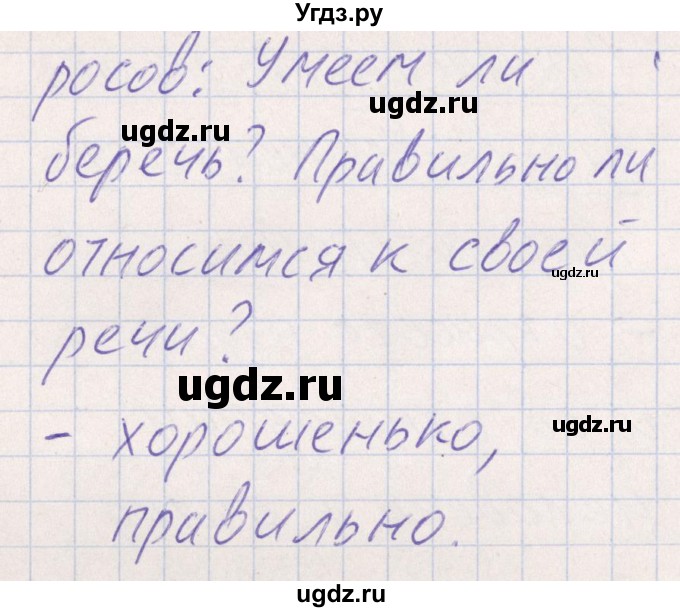 Угдз.ру
росов: Умеем ли
ugdz.ru
ugdz.ru
беречь? Правильно ли
относимся к своей
ugdz.ru
речи?
ugdz.ru
- хорошенько,
ugdz.ru
правильно.
ugdz.ru